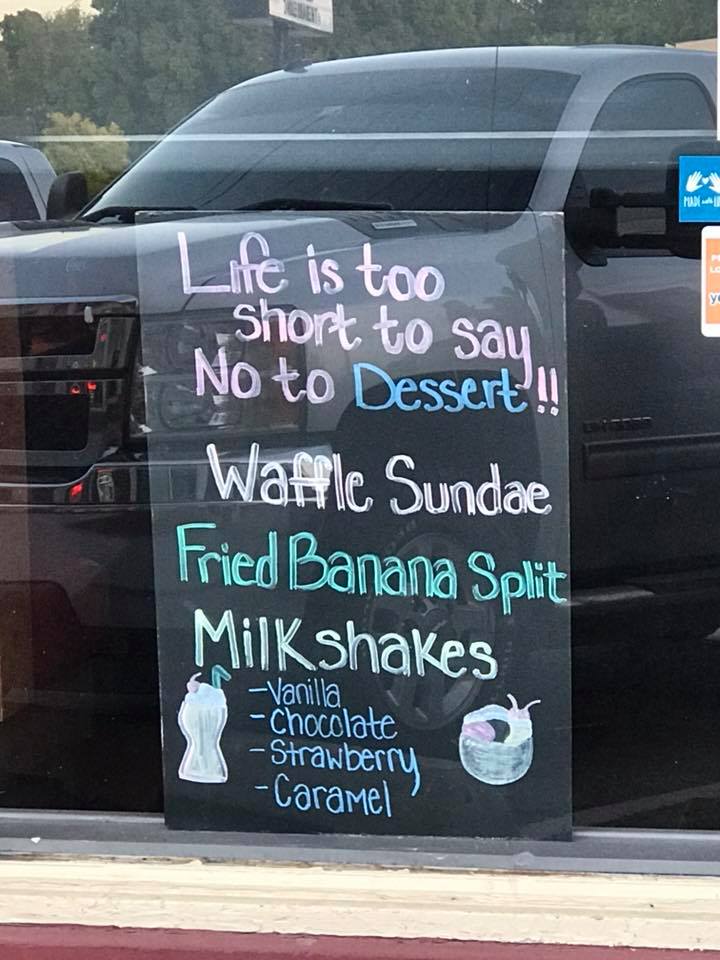 Life is too
short to say
No to Dessert!!
Waffle Sundae
Fried Banana Split
Milkshakes
-Vanilla
-Chocolate
-Strawberry
-Caramel